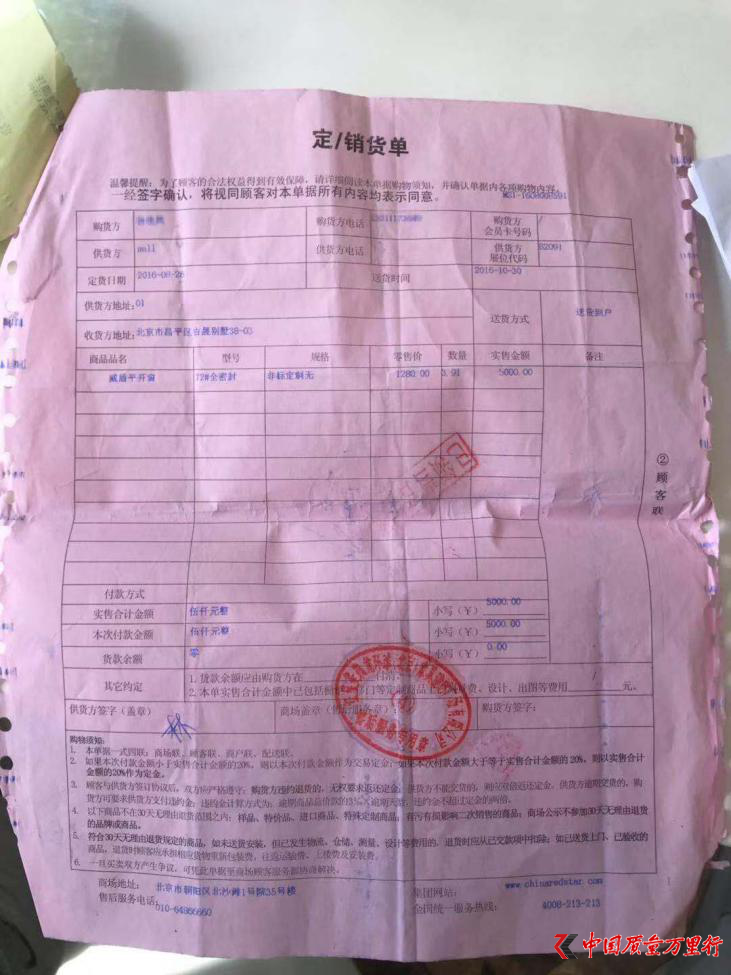 定/销货单
温馨提醒：为了顾客的合法权益得到有效保障，请详细阅读本单据购物须知，并确认单据内各项购物内容。
一经签字确认，将视同顾客对本单据所有内容均表示同意。
购货方 购货方电话 购货方会员卡号码 /
供货方 mall 供货方电话 供货方展位代码 B2091
定货日期 2016-08-26 送货时间 2016-10-30
供货方地址:01
收货方地址:北京市昌平区百晟别墅3B-03 送货方式 送货到户
商品品名 型号 规格 零售价 数量 实售金额 备注
威盾平开窗 72#全密封 非标定制无 1280.00 3.91 5000.00
② 顾客联
付款方式
实售合计金额 伍仟元整 小写（￥） 5000.00
本次付款金额 伍仟元整 小写（￥） 5000.00
货款余额 零 小写（￥） 0.00
其它约定 1.货款余额应由购货方在
2.本单实售合计金额中已包括 设计、出图等费用 / 元。
供货方签字（盖章） 商场盖章（售后服务章）： 购货方签字：
购物须知：
1. 本单据一式四联：商场联、顾客联、商户联、配送联。
2. 如果本次付款金额小于实售合计金额的20%，则以本次付款金额为交易定金；如果本次付款金额大于等于实售合计金额的20%，则以实售合计
金额的20%作为定金。
3. 顾客与供货方签订协议后，双方应严格遵守；购货方违约退货的，无权要求返还定金；供货方不能交货的，则应双倍返还定金，供货方逾期交货的，购
货方可要求供货方支付违约金；违约金计算方式为：逾期商品总价款的 逾期天数，违约金不超过定金的两倍。
4. 以下商品不在30天无理由退货范围之内：样品、特价品、进口商品、特殊定制商品；有污有损影响二次销售的商品；商场公示不参加30天无理由退货
的品牌或商品。
5. 符合30天无理由退货规定的商品，如未送货安装，但已发生物流、仓储、测量、设计等费用的，退货时应从已交款项中扣除；如已送货上门、已验收的
商品，退货时顾客应承担相应货物重新包装费、往返运输费、上楼费及安装费。
6. 一旦买卖双方产生争议，可凭此单据至商场顾客服务部协商解决。
商场地址： 北京市朝阳区北沙滩1号院35号楼 集团网站： www.chinaredstar.com
售后服务电话：010-64866660 全国统一服务热线： 4008-213-213
中国质量万里行